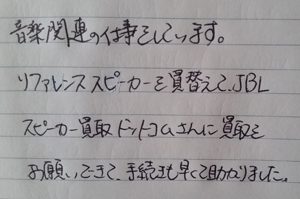 音楽関連の仕事をしています。
リファレンススピーカーを買替えで、JBL
スピーカー買取ドットコムさんに買取を
お願いできて、手続きも早くて助かりました。